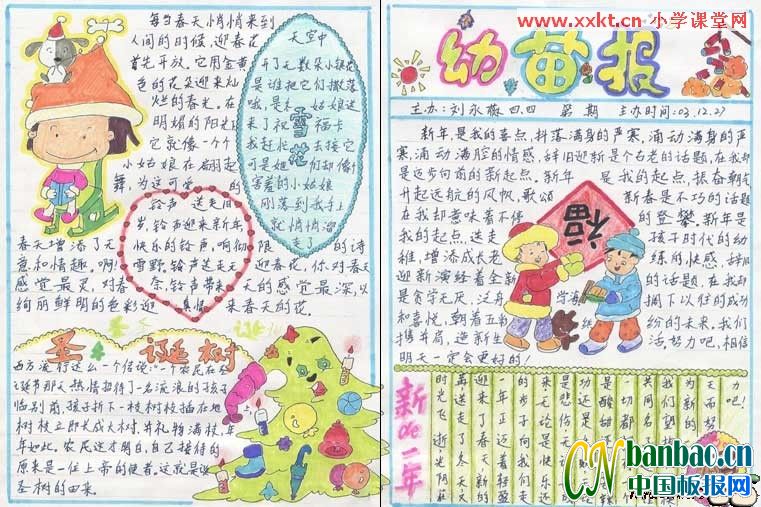 www.xxkt.cn 小学课堂网
每当春天悄悄来到
人间的时候,迎春花
首先开放。它用金黄
色的花朵迎来灿
烂的春光。在
明媚的阳光
它就像一个
小姑娘在翩起
舞,为这可爱的
春天增添了无限的诗
意和情趣。啊!迎春花,你对春天
感觉最灵,对春天的感觉最深,以
绚丽鲜明的色彩迎来春天的花。
天空中
开了无数朵小银花
是谁把它们撒落
哦,是小姑娘送
来了祝福卡
我赶忙去接它
可是她们却像
害羞的小姑娘
刚落到我手上
就悄悄溜
走了
雪花
铃声送走旧
岁,铃声迎来新年,
快乐的铃声,响彻
雪野。铃声送走无
奈,铃声带来
真情
圣诞树
西方流行这么一个传说:一个农民在圣
诞节那天热情招待了一名流浪的孩子
临别前,孩子折下一枝树枝插在地
树枝立即长成大树,并礼物满枝,
年如此。农民这才明白,自己接待的
原来是一位上帝的使者。这就是说
圣树的由来。
幼苗报
主办:刘永薇 四.四 第 期 主办时间:03.12.27
新年是我的春点,抖落满身的严寒,涌动满身的严
寒,涌动满腔的情感,辞旧迎新是个古老的话题,在我却
是迈步向前的新起点,新年是我的起点,振奋朝气
升起远航的风帆,歌颂新春是不朽的话题
在我却意味着不停的登攀。新年是
我的起点,送走孩子时代的幼
稚,增添成长老练的快感,辞旧
迎新演绎着全新的话题,在我却
是贪守无厌,泛舟学海,掬下以胜的成功
和喜悦,朝着五彩缤纷的未来。我们
携手并肩,迎新生活努力吧,相信
明天一定会更好的!
福
新de一年
时光飞逝,光阴荏
苒送走了冬天又
迎来了春天,新的
一年正迈着轻盈
的步子向我们走
来无论是快乐还
是悲伤无论是成
banbao.cn
中国板报网